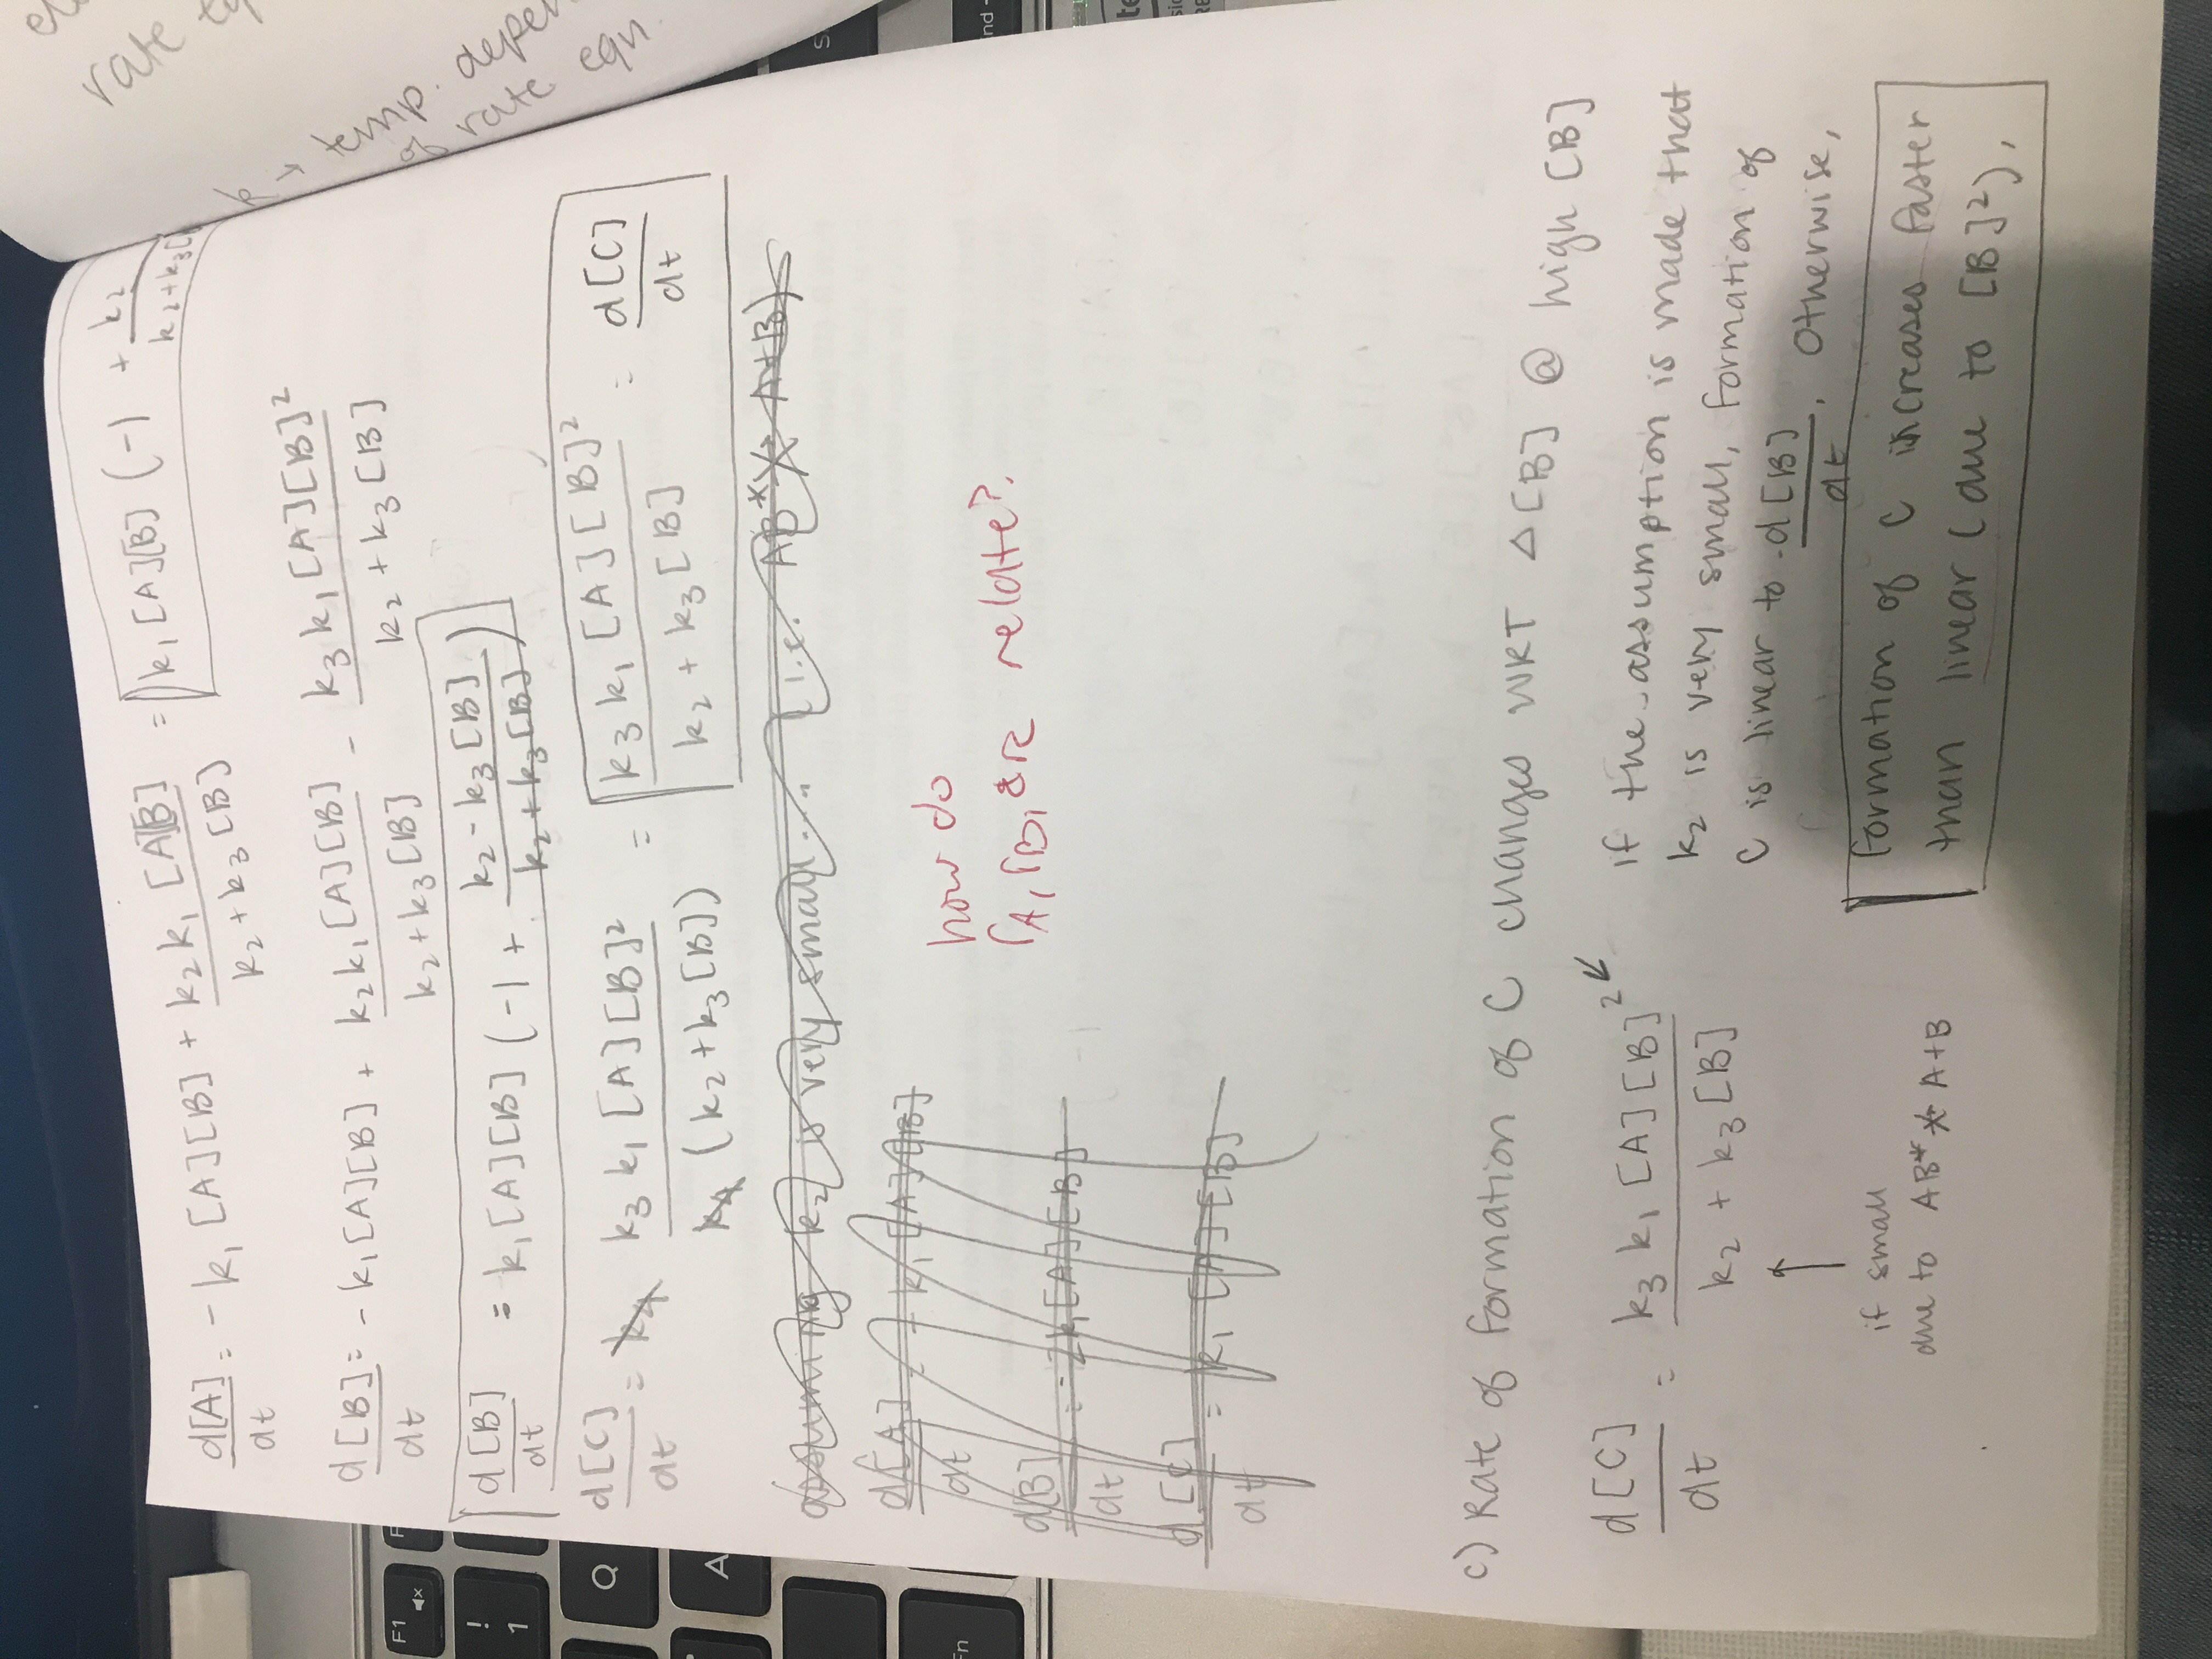 d[A]/dt = - k₁ [A][B] + k₂ k₁ [A][B] / k₂ + k₃ [B] = k₁ [A][B] (-1 + k₂ / k₂ + k₃[
d[B]/dt = - k₁[A][B] + k₂k₁[A][B] / k₂ + k₃[B] - k₃ k₁[A][B]² / k₂ + k₃[B]
d[B]/dt = k₁[A][B] (-1 + k₂ - k₃[B] / k₂ + k₃[B])
d[C]/dt = k₄ k₃ k₁ [A][B]² / k₄ (k₂ + k₃[B]) = k₃ k₁ [A][B]² / k₂ + k₃[B] = d[C]/dt
assuming k₂ is very small.... (i.e. AB* ↛ A+B)
d[A]/dt = - k₁ [A][B]
d[B]/dt = -2k₁[A][B]
d[C]/dt = k₁ [A][B]
how do
r_A, r_B, & r_C relate?
c) Rate of formation of C changes WRT Δ[B] @ high [B]
d[C]/dt = k₃ k₁ [A][B]² / k₂ + k₃[B]
↑
if small
due to AB* ↛ A+B
if the assumption is made that
k₂ is very small, formation of
C is linear to -d[B]/dt. Otherwise,
formation of C increases faster
than linear (due to [B]²).
rate
→ temp. depen
of rate eqn.
F1
!
1
Q
A
Fn